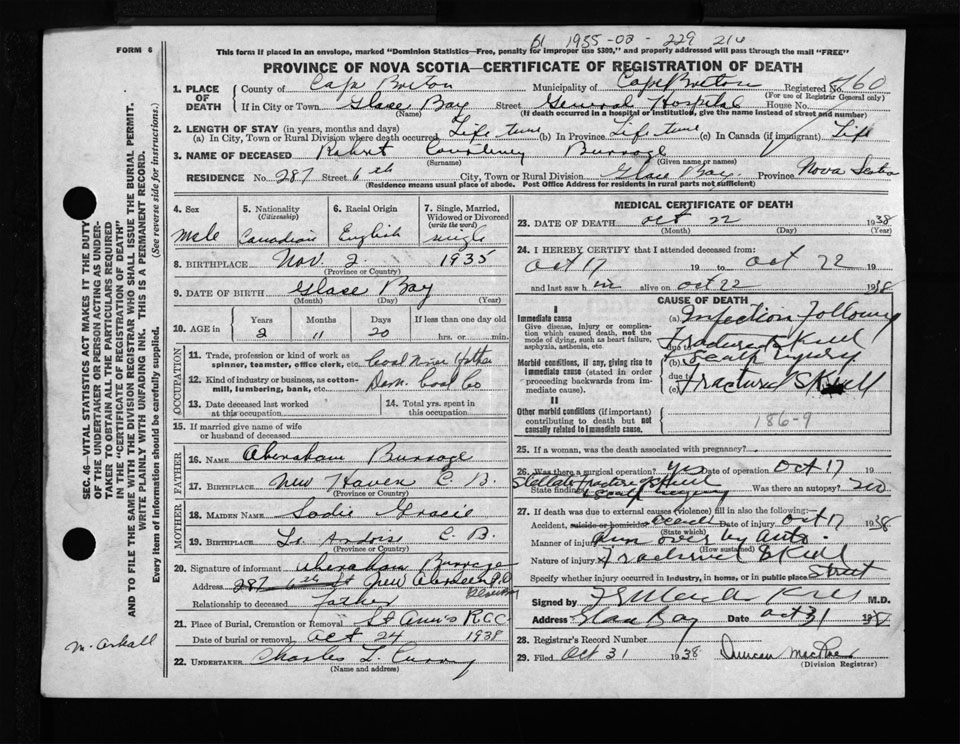 1935-02-229 210
FORM 6
This form if placed in an envelope, marked "Dominion Statistics—Free, penalty for improper use $300," and properly addressed will pass through the mail "FREE"
PROVINCE OF NOVA SCOTIA—CERTIFICATE OF REGISTRATION OF DEATH
1. PLACE OF DEATH County of Cape Breton Municipality of Cape Breton Registered No. 760
(For use of Registrar General only)
If in City or Town Glace Bay Street General Hospital House No.
(Name) (If death occurred in a hospital or institution, give the name instead of street and number)
2. LENGTH OF STAY (in years, months and days)
(a) In City, Town or Rural Division where death occurred Life time (b) In Province Life time (c) In Canada (if immigrant) Life
3. NAME OF DECEASED Robert Courtney Burrage
(Surname) (Given name or names)
RESIDENCE No. 287 Street 6th City, Town or Rural Division Glace Bay Province Nova Scotia
(Residence means usual place of abode. Post Office Address for residents in rural parts not sufficient)
4. Sex Male
5. Nationality (Citizenship) Canadian
6. Racial Origin English
7. Single, Married, Widowed or Divorced (write the word) single
8. BIRTHPLACE Nov 2. 1935
(Province or Country)
9. DATE OF BIRTH Glace Bay
(Month) (Day) (Year)
10. AGE in Years Months Days If less than one day old
2 11 20 hrs. or min.
OCCUPATION
11. Trade, profession or kind of work as spinner, teamster, office clerk, etc. Coal Miner father
12. Kind of industry or business, as cotton-mill, lumbering, bank, etc. Dom. Coal Co
13. Date deceased last worked at this occupation
14. Total yrs. spent in this occupation
15. If married give name of wife or husband of deceased
FATHER
16. Name Abersham Burrage
17. Birthplace New Haven C. B.
(Province or Country)
MOTHER
18. Maiden Name Sadie Gracie
19. Birthplace C. B.
(Province or Country)
20. Signature of informant Abersham Burrage
Address 287 6th St New Aberdeen
Glace Bay
Relationship to deceased father
21. Place of Burial, Cremation or Removal St Ann's R.C.C.
Date of burial or removal Oct 24 1938
22. UNDERTAKER Charles L. Curry
MEDICAL CERTIFICATE OF DEATH
23. DATE OF DEATH Oct 22 1938
(Month) (Day) (Year)
24. I HEREBY CERTIFY that I attended deceased from:
Oct 17 19 to Oct 22 19
and last saw him alive on Oct 22 1938
CAUSE OF DEATH
I
Immediate cause
Give disease, injury or complication which caused death, not the mode of dying, such as heart failure, asphyxia, asthenia, etc.
(a) Infection Following
due to Fractured Skull
Morbid conditions, if any, giving rise to immediate cause (stated in order proceeding backwards from immediate cause).
(b) Scalp injury
due to
(c) Fractured Skull
II
Other morbid conditions (if important) contributing to death but not causally related to immediate cause.
186-9
25. If a woman, was the death associated with pregnancy?
26. Was there a surgical operation? Yes Date of operation Oct 17 19
State findings Stellate fracture of skull Was there an autopsy? no
27. If death was due to external causes (violence) fill in also the following:—
Accident, suicide or homicide Date of injury Oct 17 1938
(State which)
Manner of injury Run over by auto
(How sustained)
Nature of injury Fractured Skull
Specify whether injury occurred in industry, in home, or in public place Street
Signed by M.D.
Address Glace Bay Date Oct 31 193
28. Registrar's Record Number
29. Filed Oct 31 1938 Duncan MacRae
(Division Registrar)
SEC. 46—VITAL STATISTICS ACT MAKES IT THE DUTY OF THE UNDERTAKER OR PERSON ACTING AS UNDERTAKER TO OBTAIN ALL THE PARTICULARS REQUIRED IN THE "CERTIFICATE OF REGISTRATION OF DEATH" AND TO FILE THE SAME WITH THE DIVISION REGISTRAR WHO SHALL ISSUE THE BURIAL PERMIT.
WRITE PLAINLY WITH UNFADING INK. THIS IS A PERMANENT RECORD.
Every item of information should be carefully supplied. (See reverse side for instructions.)